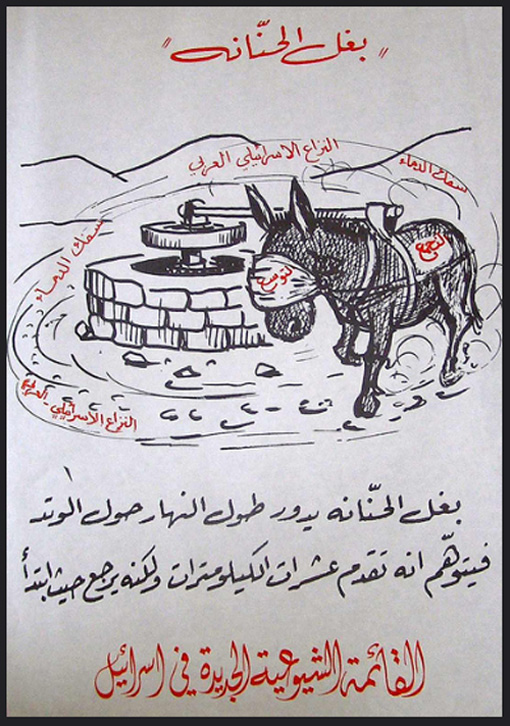 "بغل الحنّانه"
النزاع الاسرائيلي العربي
سفك الدماء
سفك الدماء
النزاع الاسرائيلي العربي
بغل الحنّانه يدور طول النهار حول الوتد
فيتوهّم انه تقدم عشرات الكيلومترات ولكنه يرجع حيث ابتدأ
القائمة الشيوعية الجديدة في اسرائيل